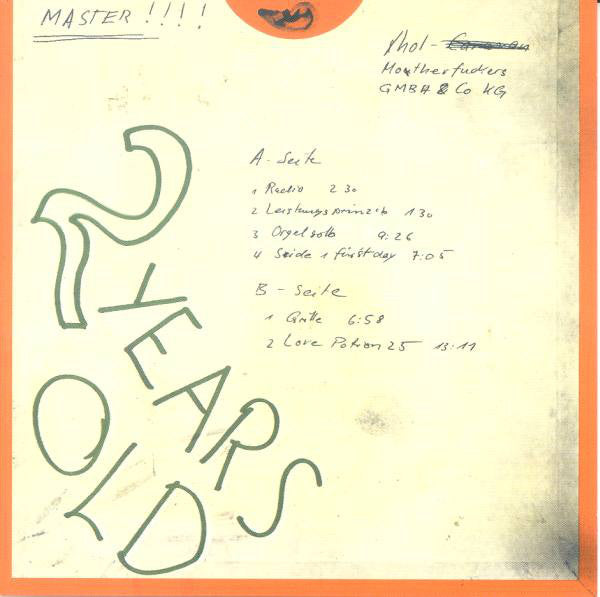 MASTER !!!!
Phol-
Moutherfuckers
GMBH & Co KG
A - Seite
1 Radio 2 30
2 Leistungsprinzip 1 30
3 Orgelsolo 9:26
4 Side 1 first day 7:05
B - Seite
1 Grille 6:58
2 Love Potion 25 13:11
2 YEARS
OLD